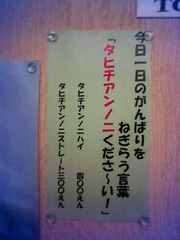 今日一日のがんばりを
ねぎらう言葉
「タヒチアンノニくださ~い!」
タヒチアンノニハイ 四〇〇えん
タヒチアンノニストレート三〇〇えん
TO